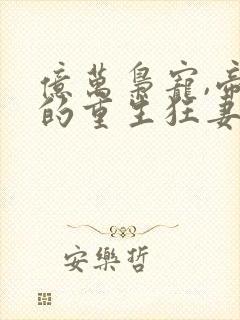 億萬梟寵,帝
的重生狂妻
安樂哲